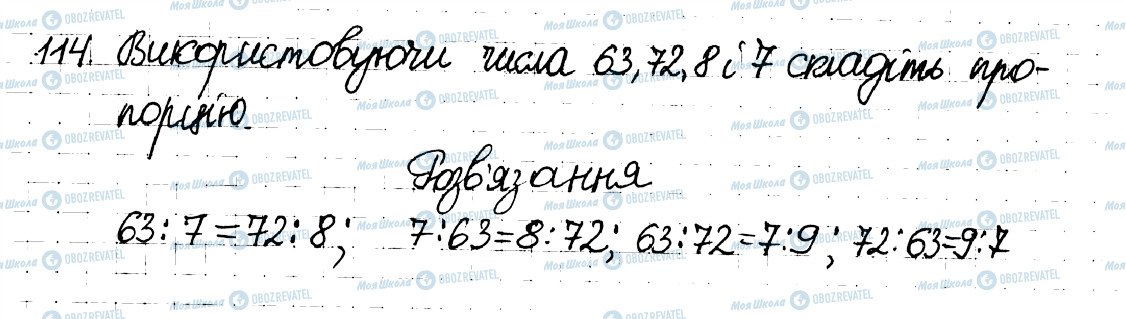 114. Використовуючи числа 63, 72, 8 і 7 складіть про-
порцію.
Розв'язання
63:7=72:8; 7:63=8:72; 63:72=7:9; 72:63=9:7